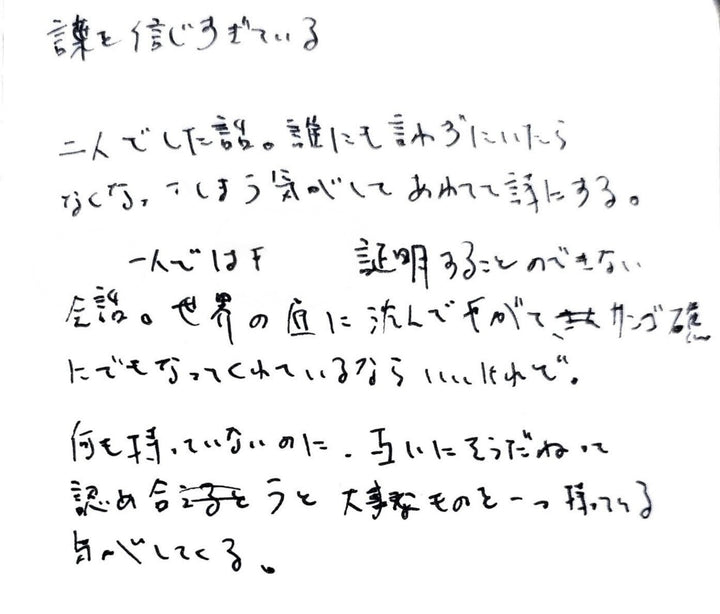 言葉を信じすぎている
二人でした話。誰にも言わずにいたら
なくなってしまう気がしてあわてて詩にする。
一人では 証明することのできない
会話。世界の底に沈んでやがて サンゴ礁
にでもなってくれているならいいけれど。
何も持っていないのに、互いにそうだねって
認め合うと大事なものを一つ持っている
気がしてくる。